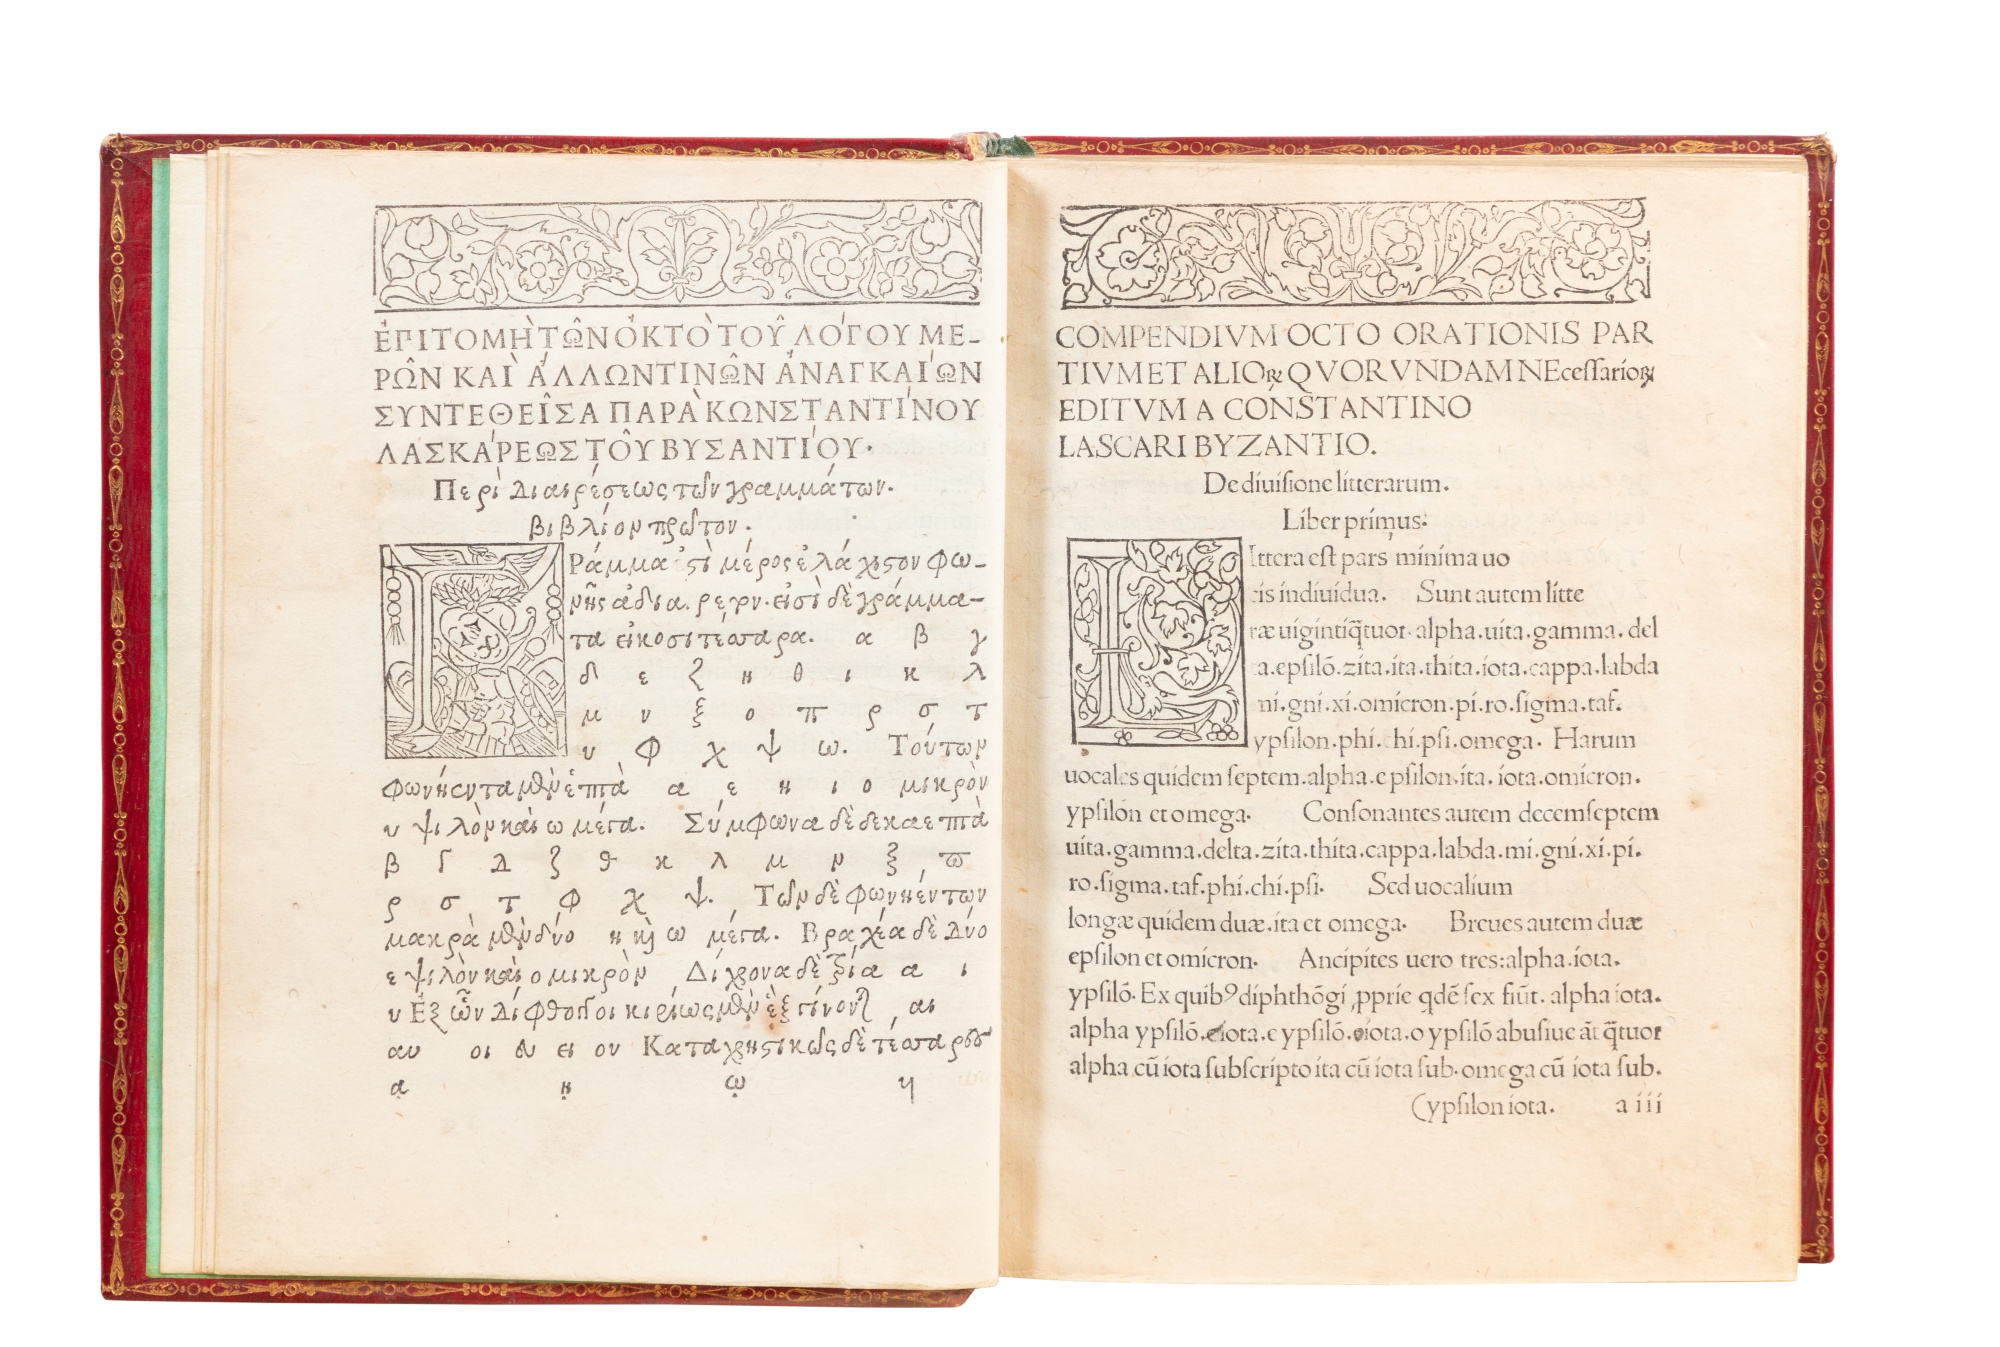 ἘΠΙΤΟΜῊ ΤΩ͂Ν ὈΚΤῸ ΤΟΥ͂ ΛΌΓΟΥ ΜΕ-
ΡΩ͂Ν ΚΑῚ ἌΛΛΩΝ ΤΙΝΩ͂Ν ἈΝΑΓΚΑΊΩΝ
ΣΥΝΤΕΘΕΙ͂ΣΑ ΠΑΡᾺ ΚΩΝΣΤΑΝΤΊΝΟΥ
ΛΑΣΚΆΡΕΩΣ ΤΟΥ͂ ΒΥΣΑΝΤΊΟΥ.
Περὶ Διαιρέσεως τῶν γραμμάτων.
βιβλίον πρῶτον.
Ράμμα ἐςὶ μέρος ἐλάχιςον φω-
νῆς ἀδια. ρετν. εἰσὶ δὲ γράμμα-
τα εἰκοσιτέσσαρα. α β γ
δ ε ζ η θ ι κ λ
μ ν ξ ο π ρ σ τ
υ φ χ ψ ω. Τούτων
φωνήεντα μὲν ἑπτὰ α ε η ι ο μικρὸν
υ ψιλὸν καὶ ω μέγα. Σύμφωνα δὲ δεκαεπτὰ
β Γ Δ ζ θ κ λ μ ν ξ ϖ
ρ σ τ φ χ ψ. Τῶν δὲ φωνηέντων
μακρὰ μὲν δύο η καὶ ω μέγα. Βραχέα δὲ Δύο
ε ψιλὸν καὶ ο μικρὸν Δίχονα δὲ τρία α ι
υ Ἐξ ὧν Δίφθογγοι κιρίως μὲν ἓξ γίνονται αι
αυ οι ευ ει ου Καταχρηςικῶς δὲ τέσσαρους
ᾳ ῃ ῳ υι
COMPENDIVM OCTO ORATIONIS PAR
TIVM ET ALIOꝜ QVORVNDAM NEceſſarioꝝ
EDITVM A CONSTANTINO
LASCARI BYZANTIO.
De diuiſione litterarum.
Liber primus:
Ittera eſt pars minima uo
cis indiuidua. Sunt autem litte
ræ uigintiq̃tuor. alpha. uita. gamma. del
ta. epſilõ. zita. ita. thita. iota. cappa. labda
mi. gni. xi. omicron. pi. ro. ſigma. taf.
ypſilon. phi. chi. pſi. omega. Harum
uocales quidem ſeptem. alpha. epſilon. ita. iota. omicron.
ypſilon et omega. Conſonantes autem decemſeptem
uita. gamma. delta. zita. thita. cappa. labda. mi. gni. xi. pi.
ro. ſigma. taf. phi. chi. pſi. Sed uocalium
longæ quidem duæ. ita et omega. Breues autem duæ
epſilon et omicron. Ancipites uero tres: alpha. iota.
ypſilõ. Ex quibꝰ diphthõgi ꝓprie qdẽ ſex fiũt. alpha iota.
alpha ypſilõ. eiota. e ypſilõ. oiota. o ypſilõ abuſiue ãt q̃tuor
alpha cũ iota ſubſcripto ita cũ iota ſub. omega cũ iota ſub.
(ypſilon iota. a iii